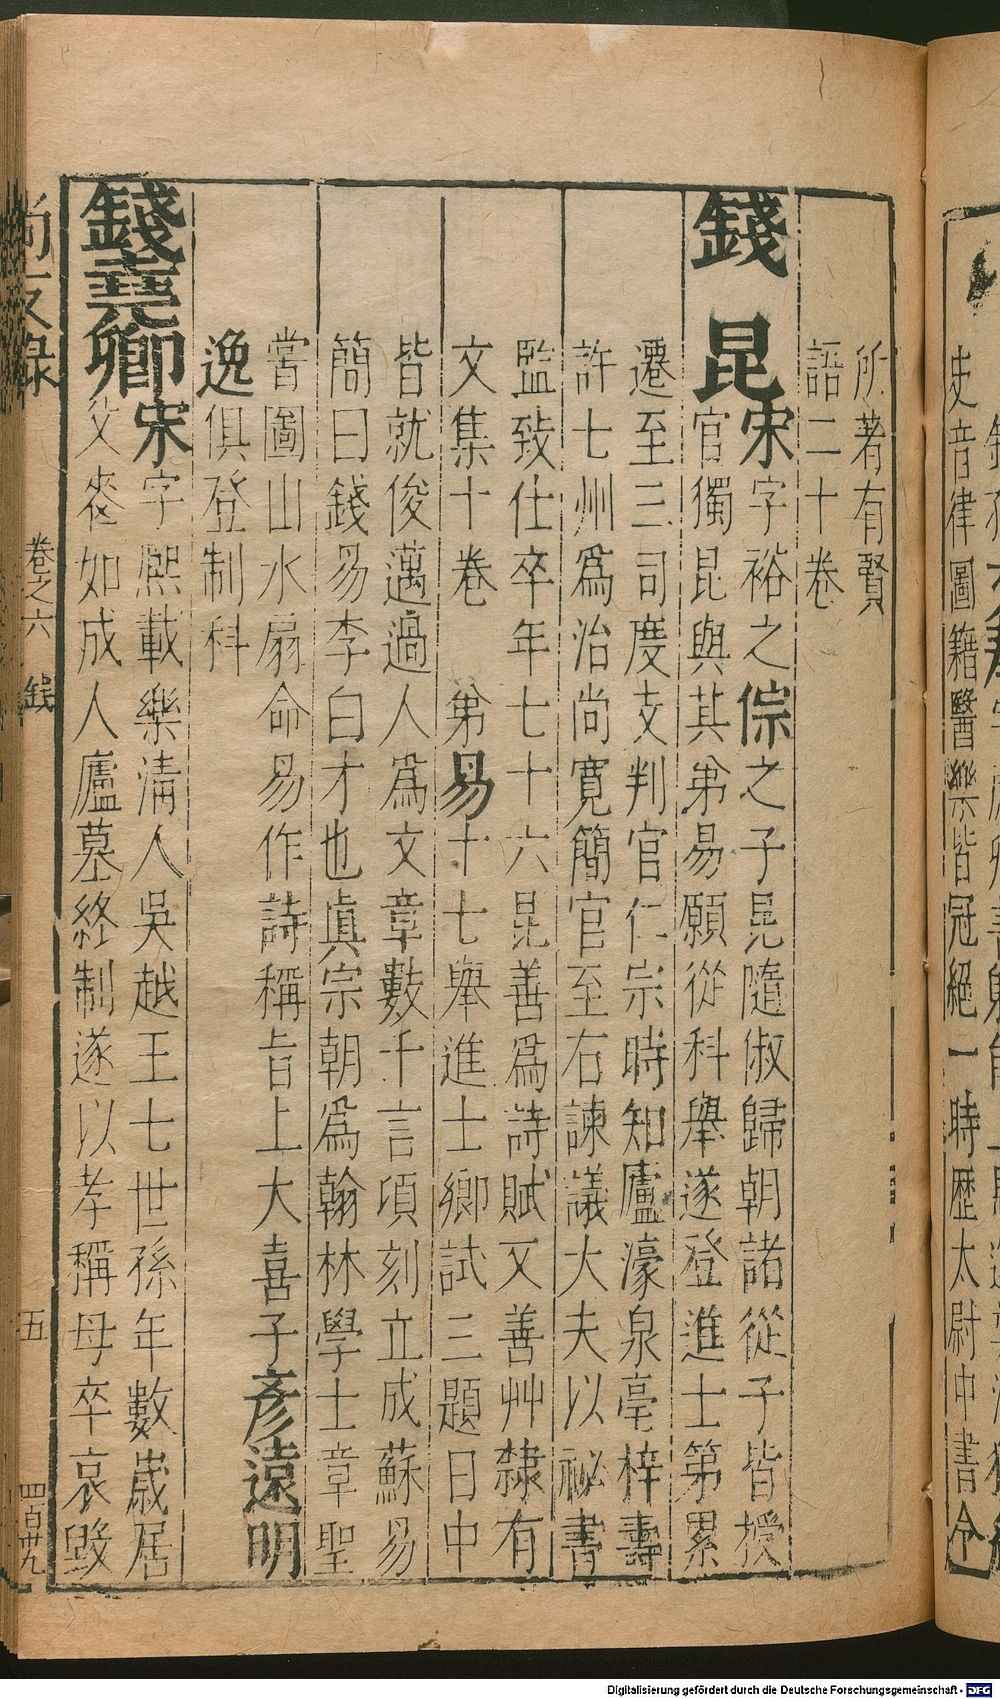 所著有賢
語二十卷
錢昆宋字裕之倧之子晃隨俶歸朝諸從子皆授
官獨昆與其弟易願從科舉遂登進士第累
遷至三司度支判官仁宗時知廬濠泉亳梓壽
許七州爲治尚寬簡官至右諫議大夫以祕書
監致仕卒年七十六晃善爲詩賦又善艸隸有
文集十卷 弟易十七舉進士鄉試三題日中
皆就俊邁過人爲文章數千言頃刻立成蘇易
簡曰錢易李白才也眞宗朝爲翰林學士章聖
嘗圖山水扇命易作詩稱旨上大喜子彥遠明
逸俱登制科
錢堯卿宋字熙載樂清人吳越王七世孫年數歲居
父喪如成人廬墓終制遂以孝稱母卒哀毀
尚友錄 卷之六 錢 五 四百卅九
史音律圖籍醫藥皆冠絕一時歷太尉中書令
Digitalisierung gefördert durch die Deutsche Forschungsgemeinschaft - DFG